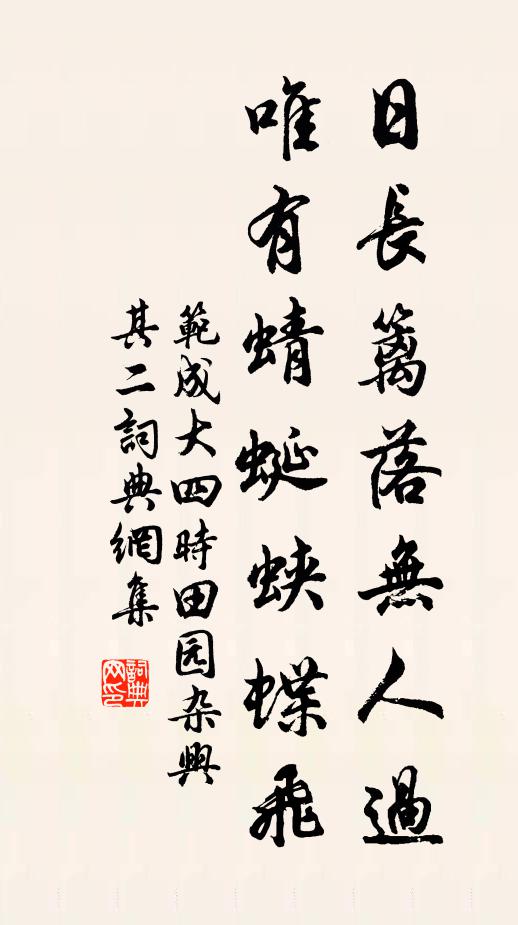 日長籬落無人過
唯有蜻蜓蛺蝶飛
範成大四時田园杂興
其二詞典網集
詞典网印